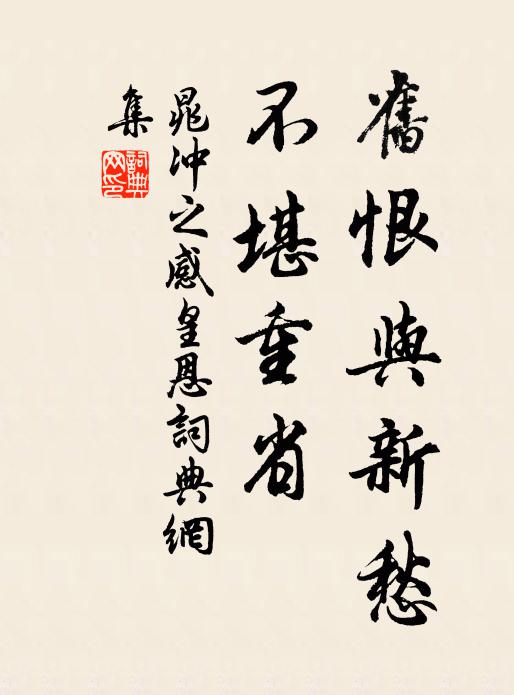 舊恨與新愁
不堪重省
晁冲之感皇恩詞典網
集
詞典
网印